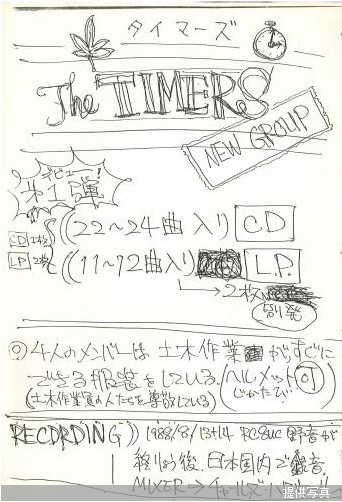 タイマーズ
The TIMERS
NEW GROUP
デビュー!
第1弾
CD 1枚 22〜24曲入り CD
LP 2枚 11〜12曲入り L.P.
→2枚
別発
◎ 4人のメンバーは土木作業がすぐに
できる服装をしている。(ヘルメット可
(土木作業員の人たちを尊敬している) じかたび
RECORDING)) 1988/8/13+14 RC SUC 野音が
終りょう後、日本国内で録音。
MIXER→チャールズ
提供写真